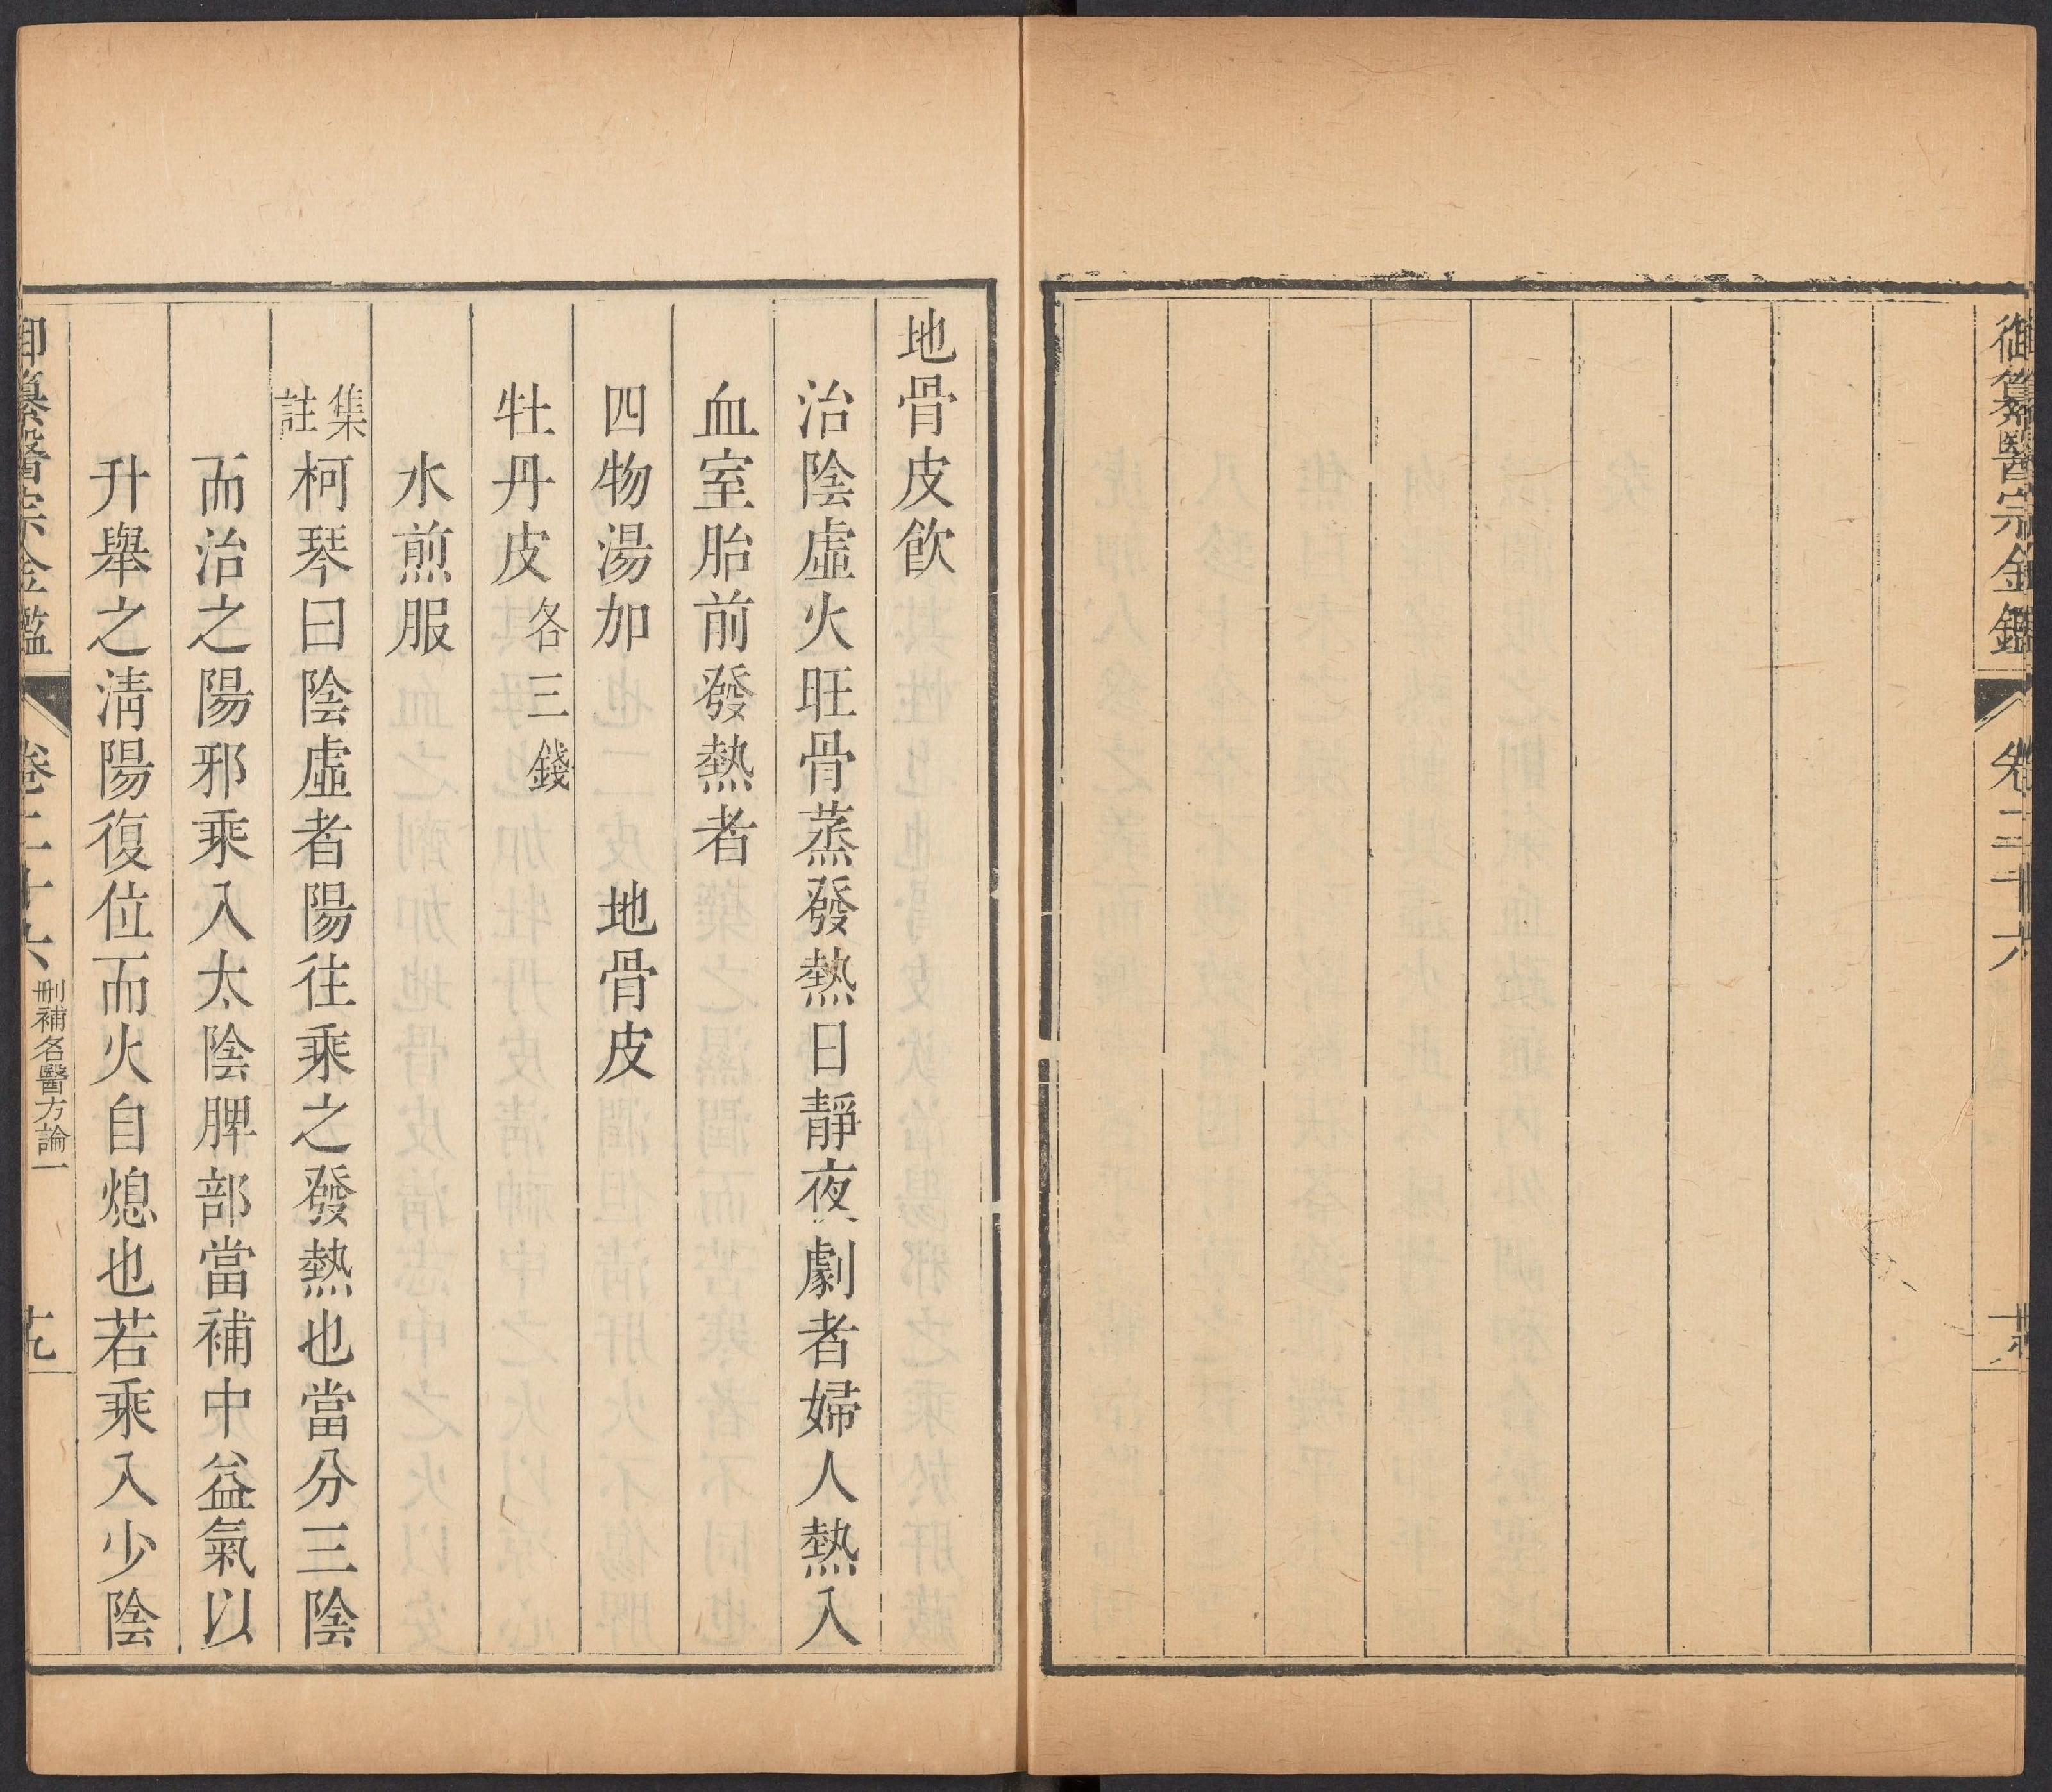 御纂醫宗金鑑 卷二十六
地骨皮飲
治陰虛火旺骨蒸發熱日靜夜劇者婦人熱入
血室胎前發熱者
四物湯加 地骨皮
牡丹皮各三錢
水煎服
集註柯琴曰陰虛者陽往乘之發熱也當分三陰
而治之陽邪乘入太陰脾部當補中益氣以
升舉之清陽復位而火自熄也若乘入少陰
御纂醫宗金鑑 卷二十六 刪補名醫方論一